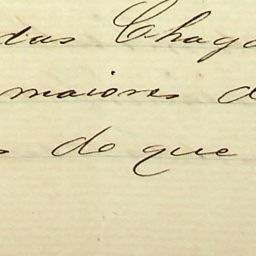 das Chag
maiores d
s do que